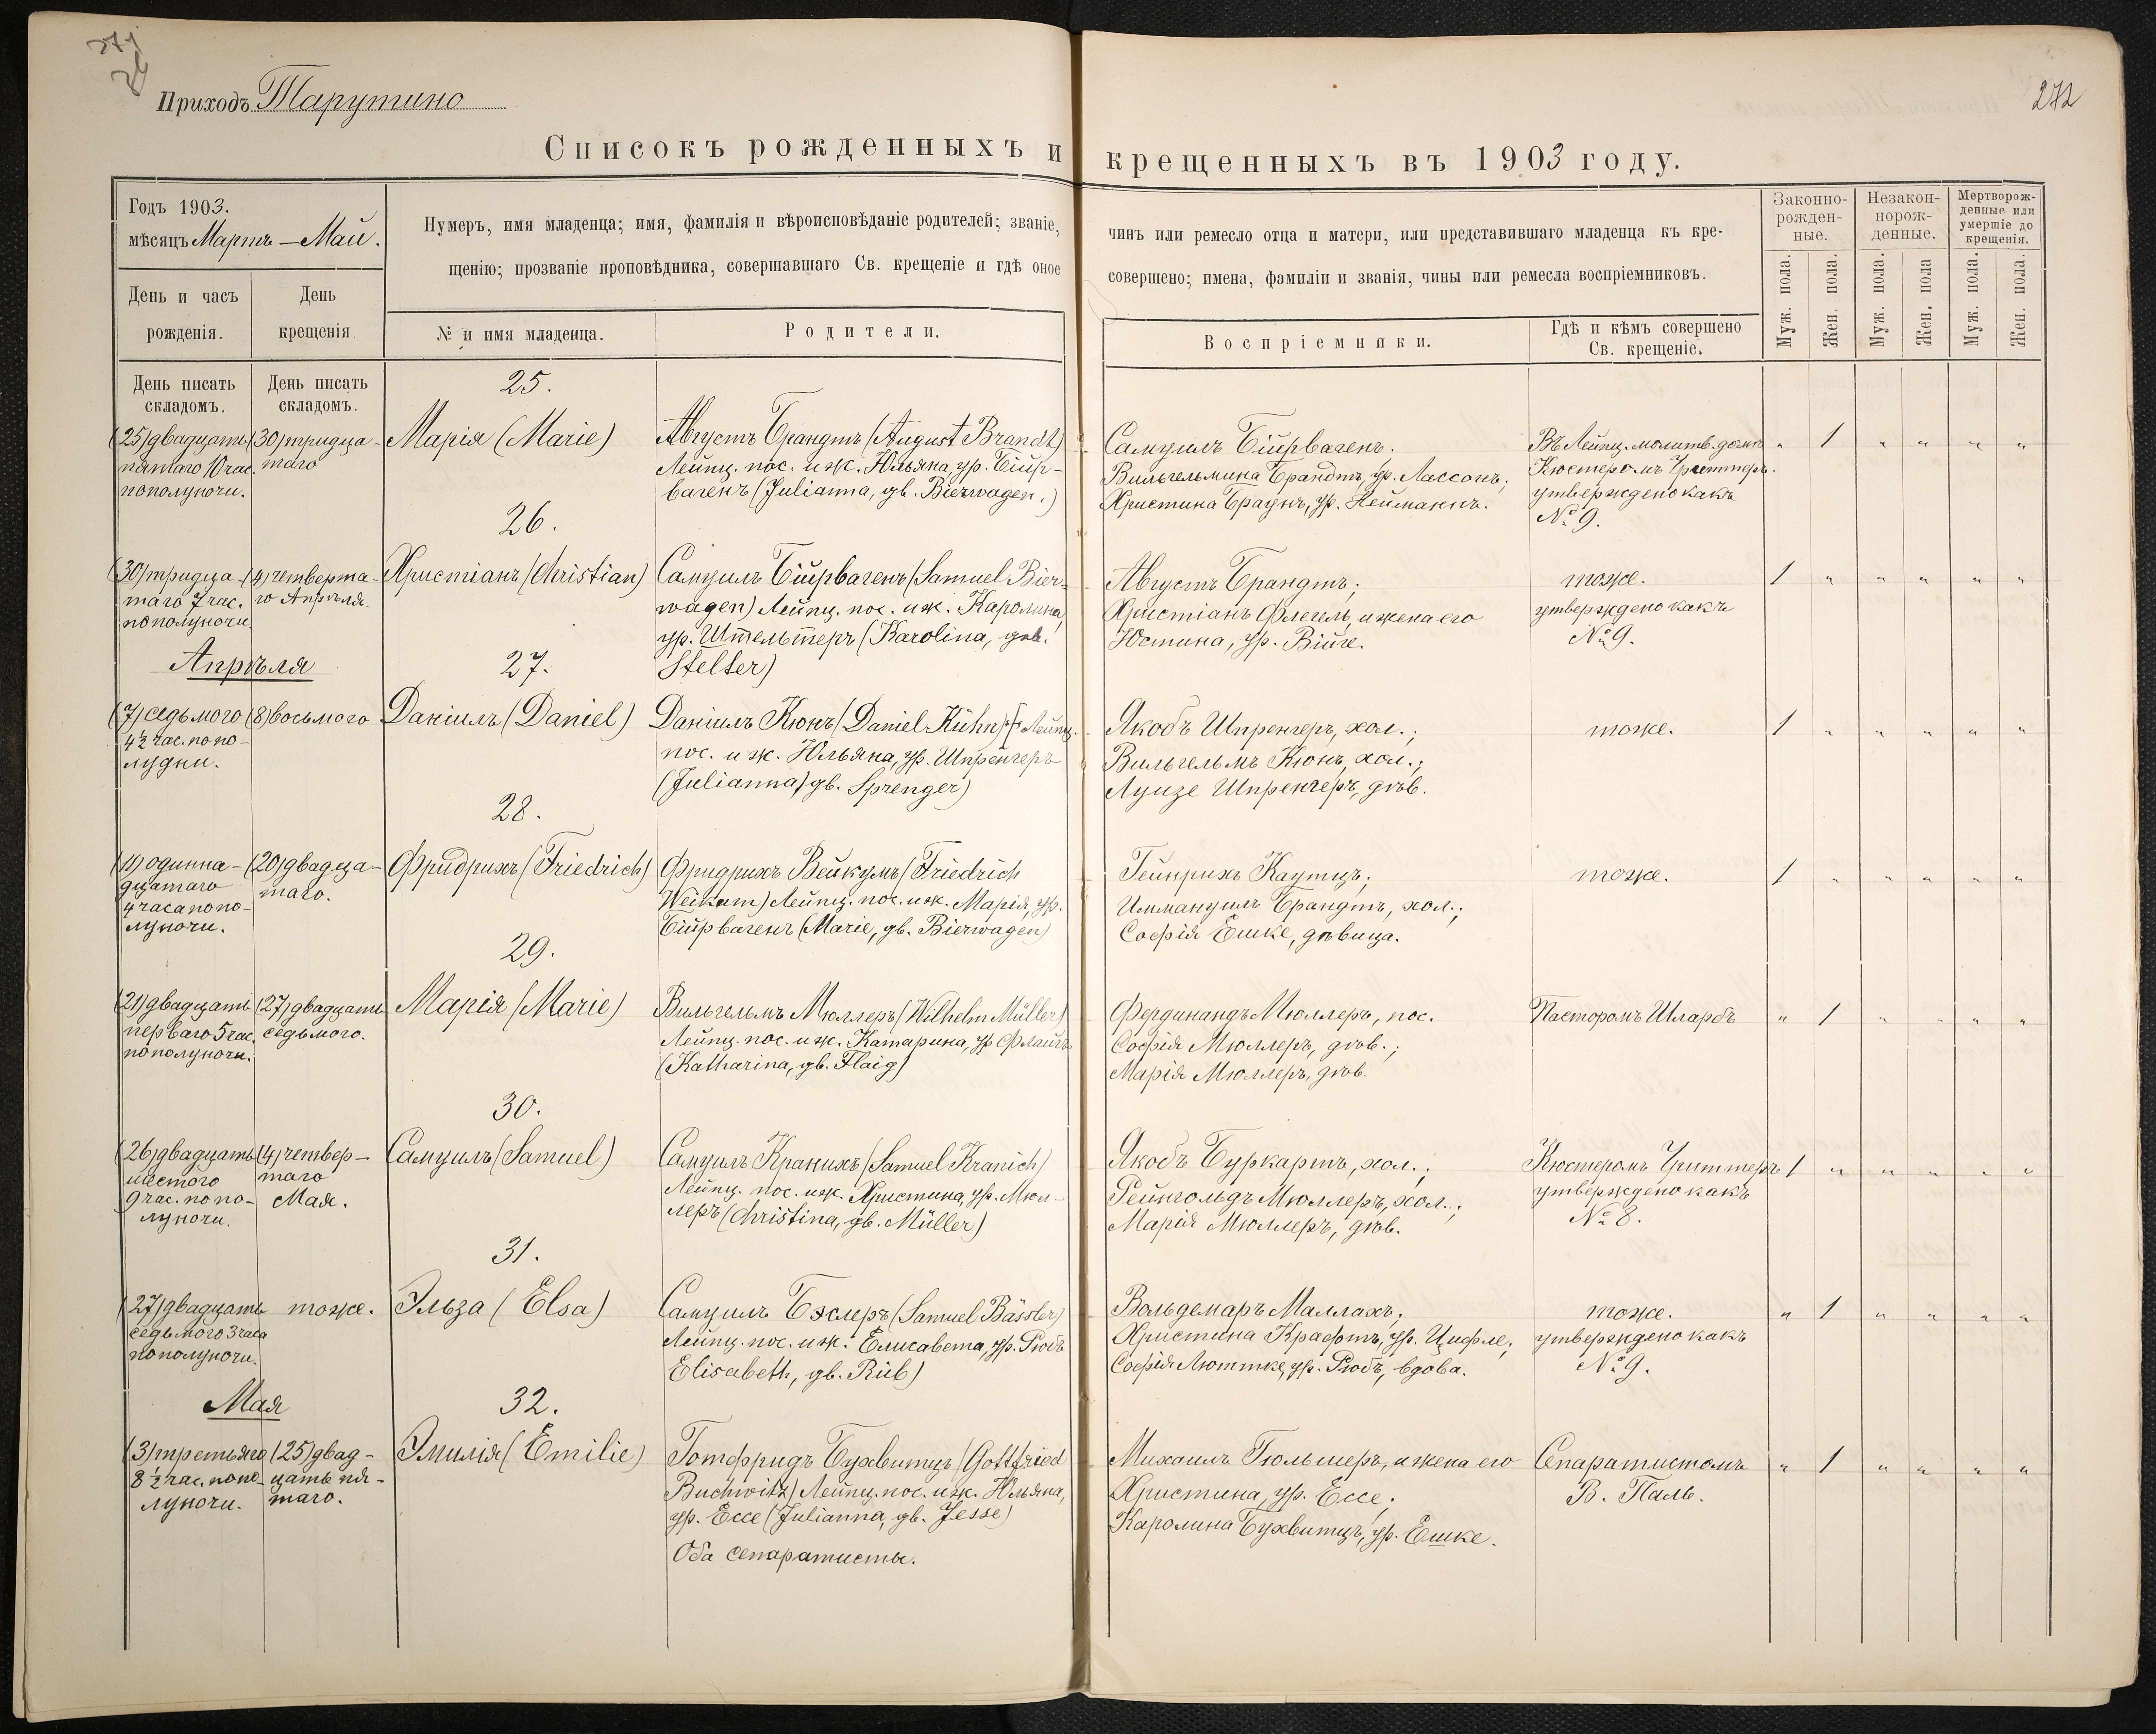 271
Приходъ Тарутино
272
Списокъ рожденныхъ и крещенныхъ въ 1903 году.
Годъ 1903.
мѣсяцъ Мартъ — Май.
Нумеръ, имя младенца; имя, фамилія и вѣроисповѣданіе родителей; званіе, чинъ или ремесло отца и матери, или представившаго младенца къ кре-
щенію; прозваніе проповѣдника, совершавшаго Св. крещеніе и гдѣ оное совершено; имена, фамиліи и званія, чины или ремесла воспріемниковъ.
Законно-
рожден-
ные.
Незакон-
норож-
денные.
Мертворож-
денные или
умершіе до
крещенія.
День и часъ
рожденія.
День
крещенія
№ и имя младенца.
Родители.
Воспріемники.
Гдѣ и кѣмъ совершено
Св. крещеніе.
Муж. пола.
Жен. пола.
Муж. пола.
Жен. пола
Муж. пола.
Жен. пола.
День писать
складомъ.
День писать
складомъ.
25.
(25) двадцать
пятаго 10 час.
пополуночи.
(30) тридца-
таго
Марія (Marie)
Августъ Брандтъ (August Brandt)
Лейпц. пос. и ж. Юльяна, ур. Бійр-
вагенъ (Julianna, gb. Bierwagen.)
Самуилъ Бійрвагенъ;
Вильгельмина Брандтъ, ур. Лассонъ;
Христина Браунъ, ур. Нейманнъ.
Въ Лейпц. молитв. домѣ
Кюстеромъ
утверждено какъ
№ 9.
" 1 " " " "
26.
(30) тридца-
таго 7 час.
пополуночи.
(4) четверта-
го Апрѣля.
Христіанъ (Christian)
Самуилъ Бійрвагенъ (Samuel Bier-
wagen) Лейпц. пос. и ж. Каролина,
ур. Штельтеръ (Karolina, geb.
Stelter)
Августъ Брандтъ;
Христіанъ Флегель, и жена его
Юстина, ур. Війге.
тоже.
утверждено какъ
№ 9.
1 " " " " "
Апрѣля
27.
(7) седьмого
4½ час. попо-
лудни.
(8) восьмого
Даніилъ (Daniel)
Даніилъ Кюнъ (Daniel Kühn) Лейпц.
пос. и ж. Юльяна, ур. Шпренгеръ
(Julianna, gb. Sprenger)
Якобъ Шпренгеръ, хол.;
Вильгельмъ Кюнъ, хол.;
Луизе Шпренгеръ, дѣв.
тоже.
1 " " " " "
28.
(11) одинна-
дцатаго
4 часа попо-
луночи.
(20) двадца-
таго.
Фридрихъ (Friedrich)
Фридрихъ Вейкумъ (Friedrich
Weikum) Лейпц. пос. и ж. Марія, ур.
Бійрвагенъ (Marie, gb. Bierwagen)
Гейнрихъ Каутцъ;
Иммануилъ Брандтъ, хол.;
Софія Ешке, дѣвица.
тоже.
1 " " " " "
29.
(21) двадцать
перваго 5 час.
пополуночи.
(27) двадцать
седьмого.
Марія (Marie)
Вильгельмъ Мюллеръ (Wilhelm Müller)
Лейпц. пос. и ж. Катарина, ур. Флайгъ
(Katharina, gb. Flaig)
Фердинандъ Мюллеръ, пос.
Софія Мюллеръ, дѣв.;
Марія Мюллеръ, дѣв.
Пасторомъ Шларъ
" 1 " " " "
30.
(26) двадцать
шестого
9 час. попо-
луночи.
(4) четвер-
таго
Мая.
Самуилъ (Samuel)
Самуилъ Кранихъ (Samuel Kranich)
Лейпц. пос. и ж. Христина, ур. Мюл-
леръ (Christina, gb. Müller)
Якобъ Буркартъ, хол.;
Рейнгольдъ Мюллеръ, хол.;
Марія Мюллеръ, дѣв.
Кюстеромъ
утверждено какъ
№ 8.
1 " " " " "
31.
(27) двадцать
седьмого 3 часа
пополуночи.
тоже.
Эльза (Elsa)
Самуилъ Бэслеръ (Samuel Bässler)
Лейпц. пос. и ж. Елисавета, ур. Рюбъ
Elisabeth, gb. Rüb)
Вольдемаръ Маллахъ;
Христина Крафтъ, ур. Цифле;
Софія Люттке, ур. Рюбъ, вдова.
тоже.
утверждено какъ
№ 9.
" 1 " " " "
Мая
32.
(3) третьяго
8½ час. попо-
луночи.
(25) двад-
цать пя-
таго.
Эмилія (Emilie)
Готфридъ Бухвитцъ (Gottfried
Buchwitz) Лейпц. пос. и ж. Юльяна,
ур. Ессе (Julianna, gb. Jesse)
Оба сепаратисты.
Михаилъ Гюльшеръ, и жена его
Христина, ур. Ессе;
Каролина Бухвитцъ, ур. Ешке.
Сепаратистомъ
В. Паль.
" 1 " " " "